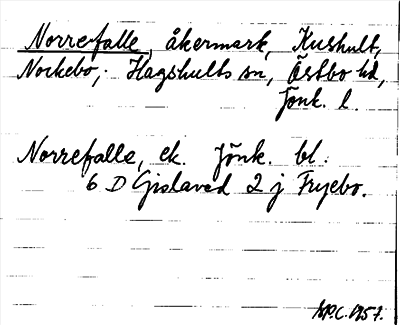 Norrefalle, åkermark, Kushult,
Nockebo, Hagshults sn, Östbo hd,
Jönk. l.
Norrefalle, ek. Jönk. bl.
6 D Gislaved 2 j Fryebo.
1957.